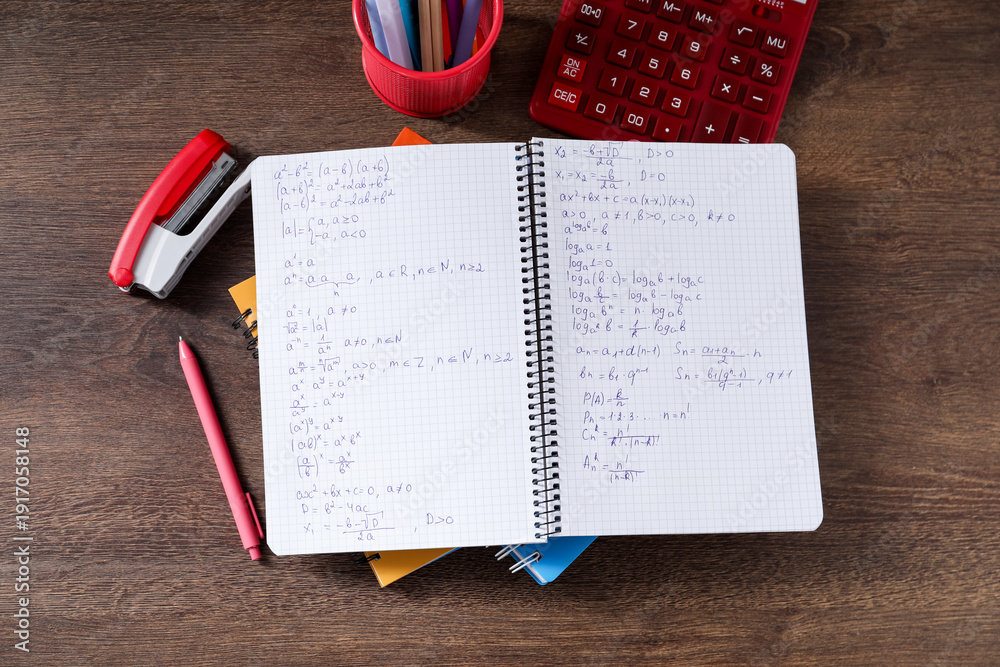 a²-b² = (a-b)(a+b)
(a+b)² = a²+2ab+b²
(a-b)² = a²-2ab+b²
|a| = { a, a≥0
-a, a<0
a¹ = a
aⁿ = a a ... a, a∈R, n∈N, n≥2
n
a° = 1, a≠0
√a² = |a|
a⁻ⁿ = 1/aⁿ a≠0, n∈N
a^(m/n) = ⁿ√aᵐ, a>0, m∈Z, n∈N, n≥2
aˣ·aʸ = aˣ⁺ʸ
aˣ/aʸ = aˣ⁻ʸ
(aˣ)ʸ = aˣ·ʸ
(ab)ˣ = aˣ bˣ
(a/b)ˣ = aˣ/bˣ
ax²+bx+c=0, a≠0
D = b²-4ac
x₁ = (-b-√D)/2a, D>0
x₂ = (-b+√D)/2a, D>0
x₁ = x₂ = -b/2a, D=0
ax²+bx+c = a(x-x₁)(x-x₂)
a>0, a≠1, b>0, c>0, k≠0
a^(logₐb) = b
logₐa = 1
logₐ1 = 0
logₐ(b·c) = logₐb + logₐc
logₐ b/c = logₐb - logₐc
logₐbⁿ = n·logₐb
log_(aᵏ) b = 1/k · logₐb
aₙ = a₁+d(n-1) Sₙ = (a₁+aₙ)/2 · n
bₙ = b₁·qⁿ⁻¹ Sₙ = b₁(qⁿ-1)/(q-1), q≠1
P(A) = k/n
Pₙ = 1·2·3·... ·n = n!
Cₙᵏ = n!/(k!·(n-k)!)
Aₙᵏ = n!/(n-k)!
00→0 7 8 9 √ MU
+/- 4 5 6 ÷ %
ON/AC 1 2 3 × −
CE/C 0 00 . + =
M− M+
Adobe Stock | #1917058148